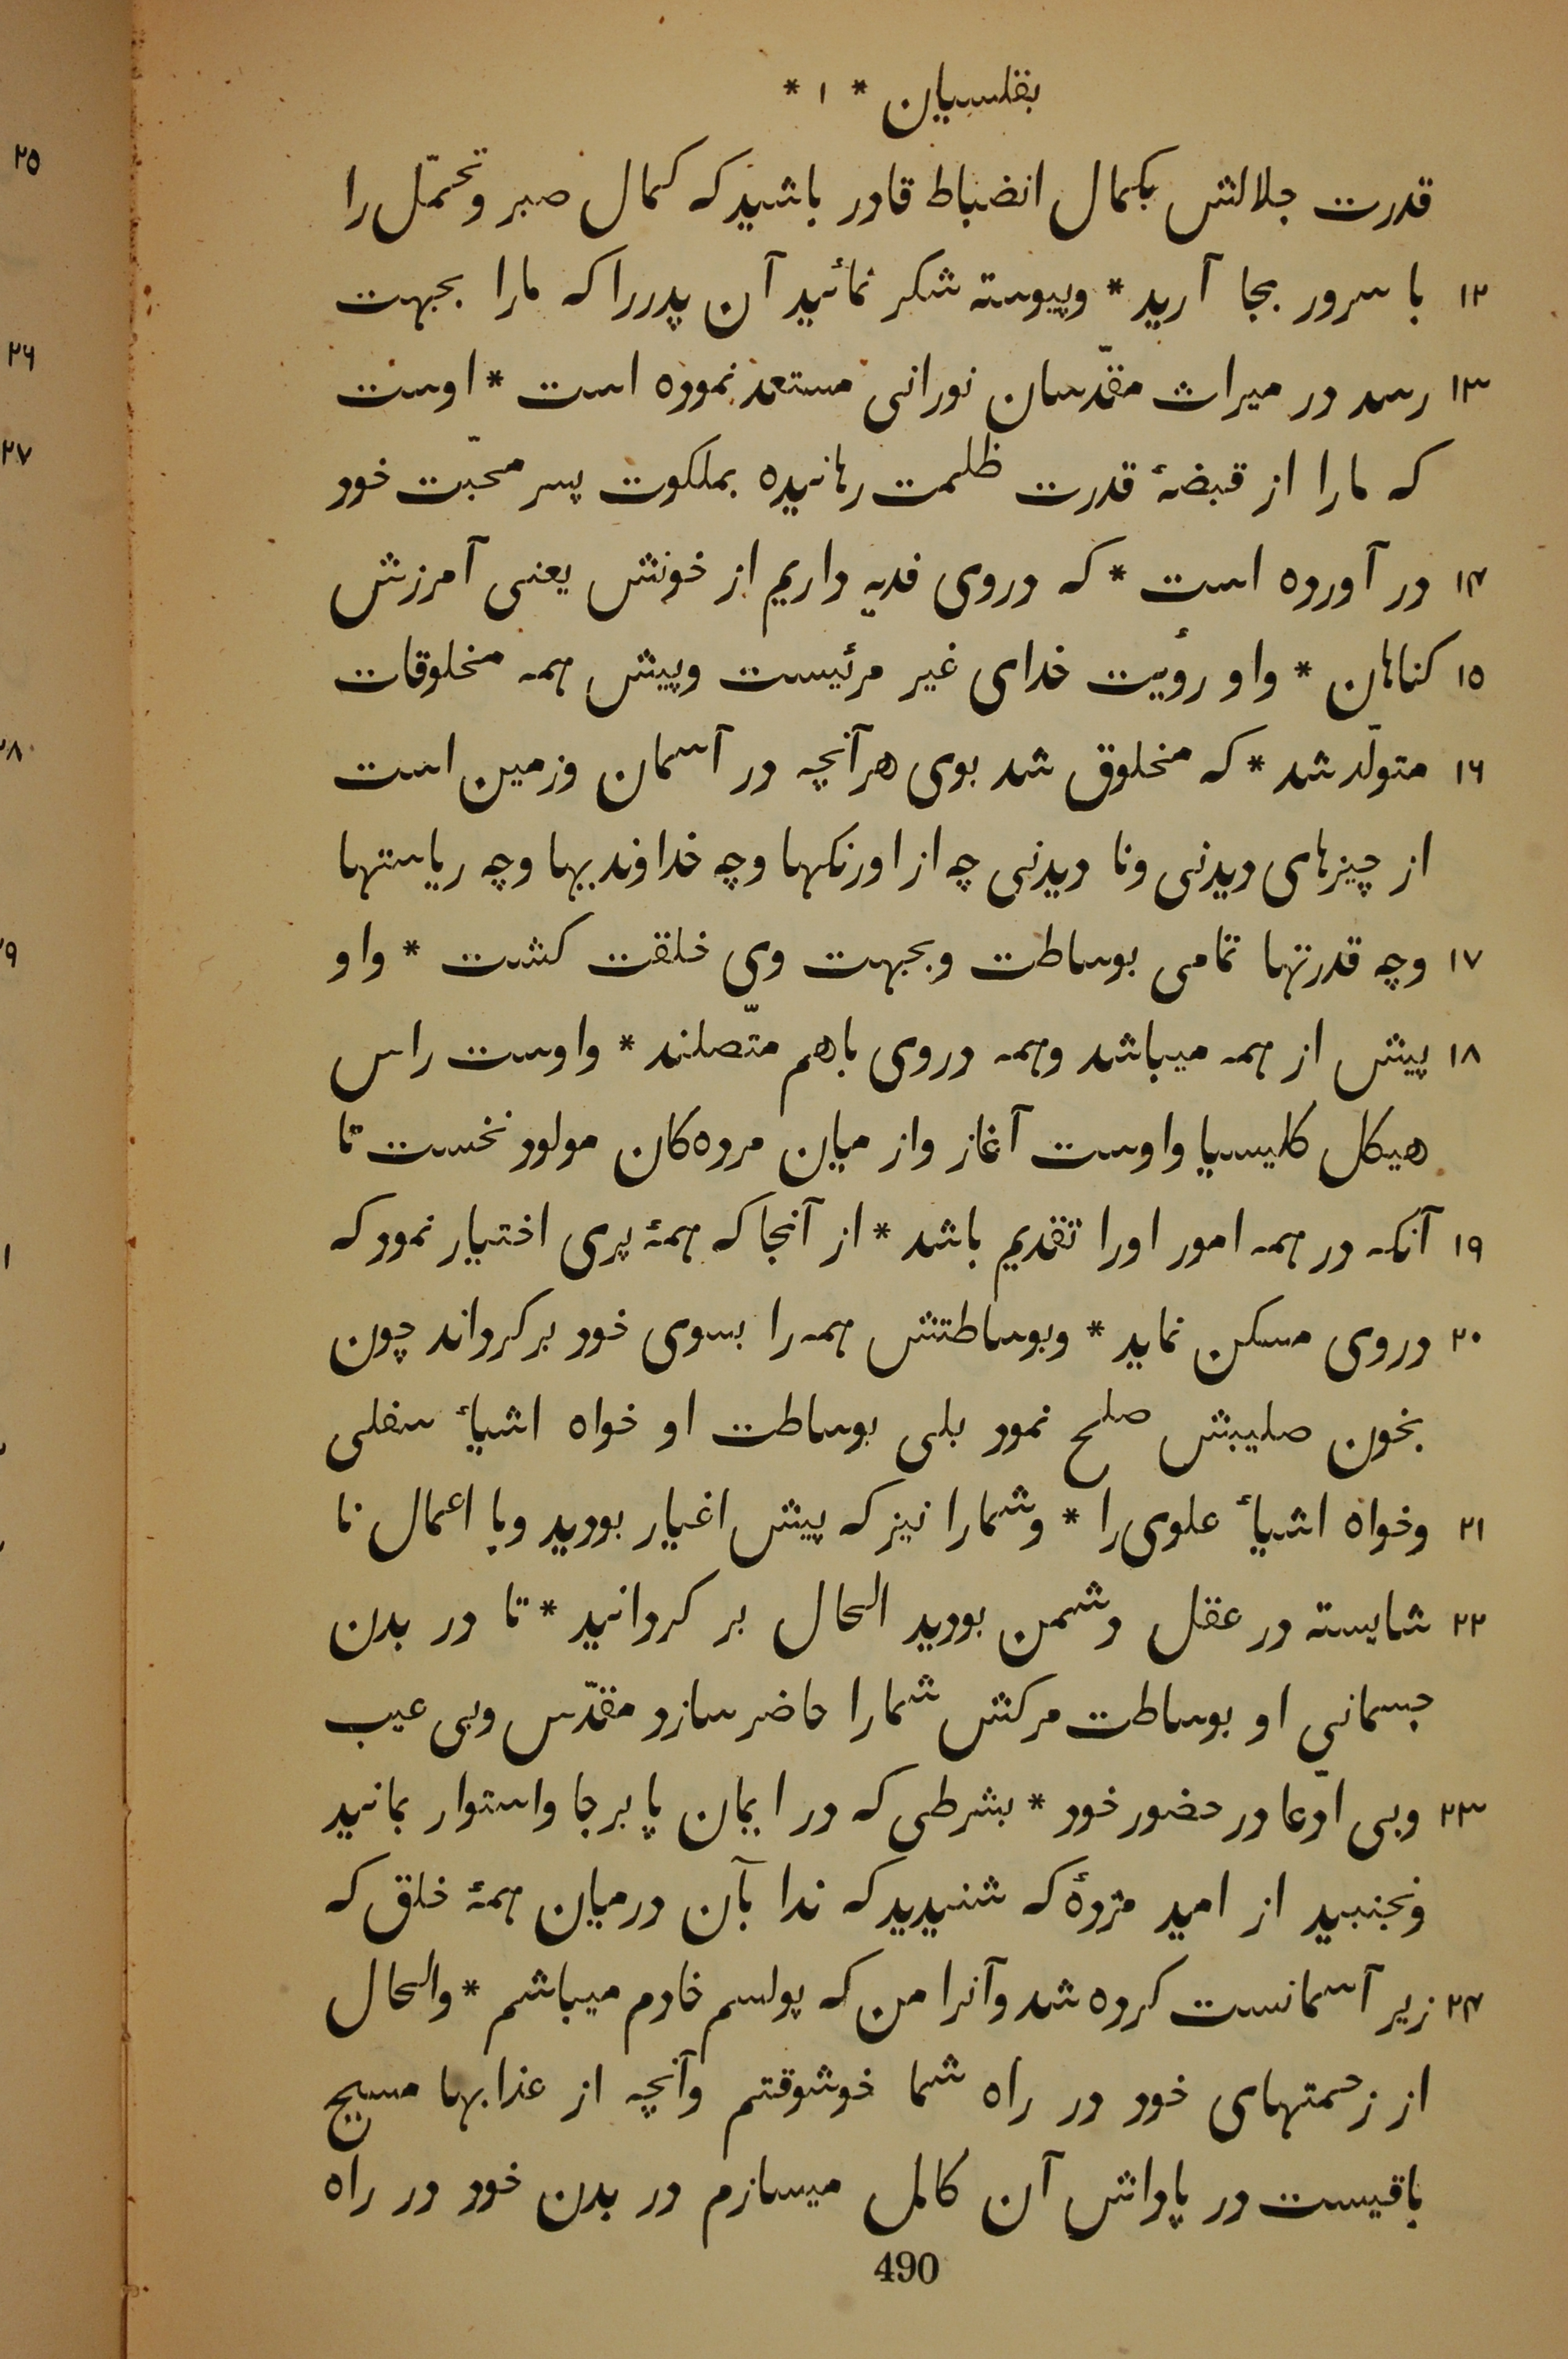 بقلسیان * ۱ *
قدرت جلالش بکمال انضباط قادر باشید که کمال صبر وتحمّل را
۱۲ با سرور بجا آرید * وپیوسته شکر نمائید آن پدررا که مارا بجهت
۱۳ رسد در میراث مقدّسان نورانی مستعد نموده است * اوست
که مارا از قبضهٔ قدرت ظلمت رهانیده بملکوت پسر محبّت خود
۱۴ در آورده است * که دروی فدیه داریم از خونش یعنی آمرزش
۱۵ کناهان * واو رؤیت خدای غیر مرئیست وپیش همه مخلوقات
۱۶ متولّد شد * که مخلوق شد بوی هرآنچه در آسمان وزمین است
از چیزهای دیدنی ونا دیدنی چه از اورنکها وچه خداوندیها وچه ریاستها
۱۷ وچه قدرتها تمامی بوساطت وبجهت وی خلقت کشت * واو
۱۸ پیش از همه میباشد وهمه دروی باهم متّصلند * واوست راس
هیکل کلیسیا واوست آغاز واز میان مرده‌کان مولود نخست تا
۱۹ آنکه در همه امور اورا تقدیم باشد * از آنجا که همهٔ پری اختیار نمود که
۲۰ دروی مسکن نماید * وبوساطتش همه را بسوی خود برکرداند چون
بخون صلیبش صلح نمود بلی بوساطت او خواه اشیأ سفلی
۲۱ وخواه اشیأ علوی را * وشمارا نیز که پیش اغیار بودید وبا اعمال نا
۲۲ شایسته در عقل دشمن بودید الحال بر کردانید * تا در بدن
جسمانی او بوساطت مرکش شمارا حاضر سازد مقدّس وبی عیب
۲۳ وبی ادّعا در حضور خود * بشرطی که در ایمان پا بر جا واستوار بمانید
ونجنبید از امید مژدهٔ که شنیدید که ندا بآن درمیان همهٔ خلق که
۲۴ زیر آسمانست کرده شد وآنرا من که پولسم خادم میباشم * والحال
از زحمتهای خود در راه شما خوشوقتم وآنچه از عذابها مسیح
باقیست در پاداش آن کامل میسازم در بدن خود در راه
490
۲۵
۲۶
۲۷